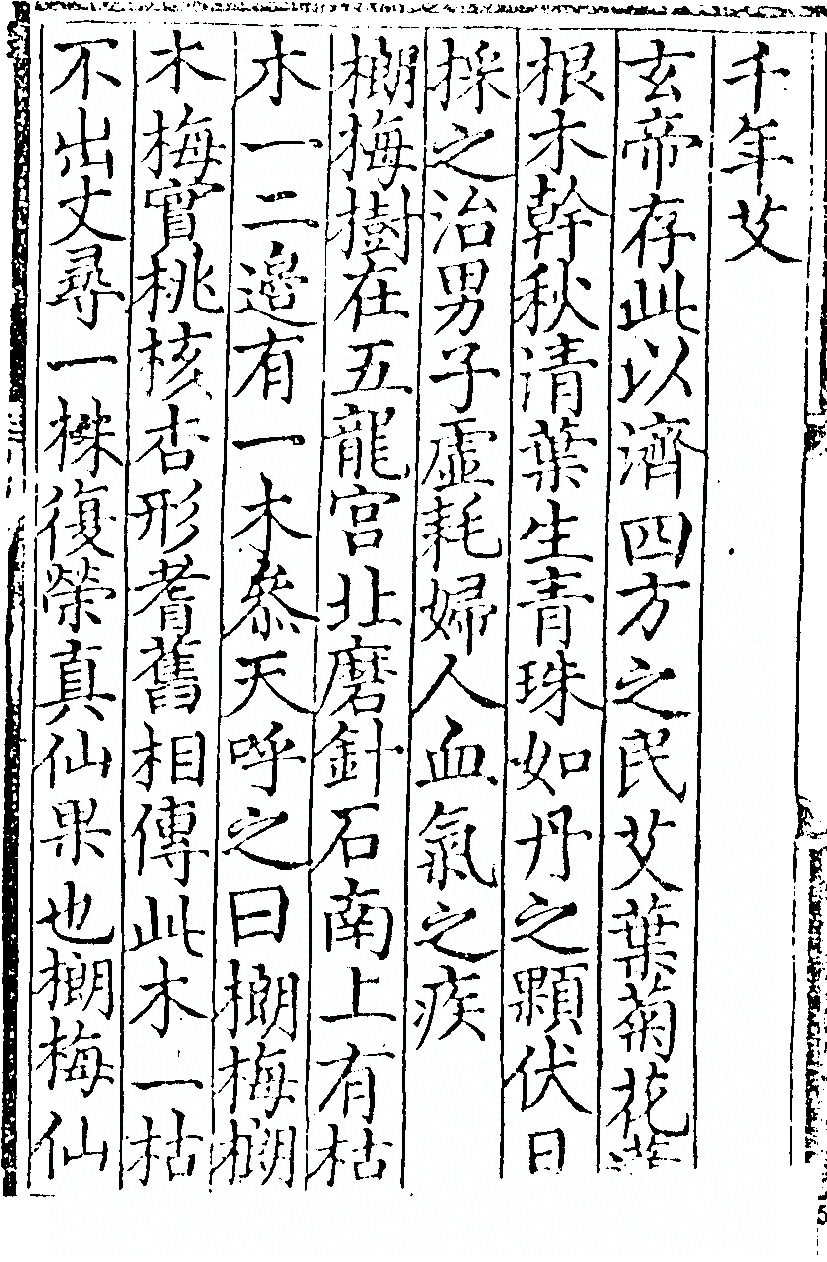 千年艾
玄帝存此以濟四方之民艾葉菊花
根木幹秋清葉生青珠如丹之顆伏日
採之治男子虛耗婦人血氣之疾
榔梅樹在五龍宮北磨針石南上有枯
木一二邉有一木叅天呼之曰榔梅榔
木梅實桃核杏形耆舊相傳此木一枯
不出丈尋一株復榮真仙果也榔梅仙